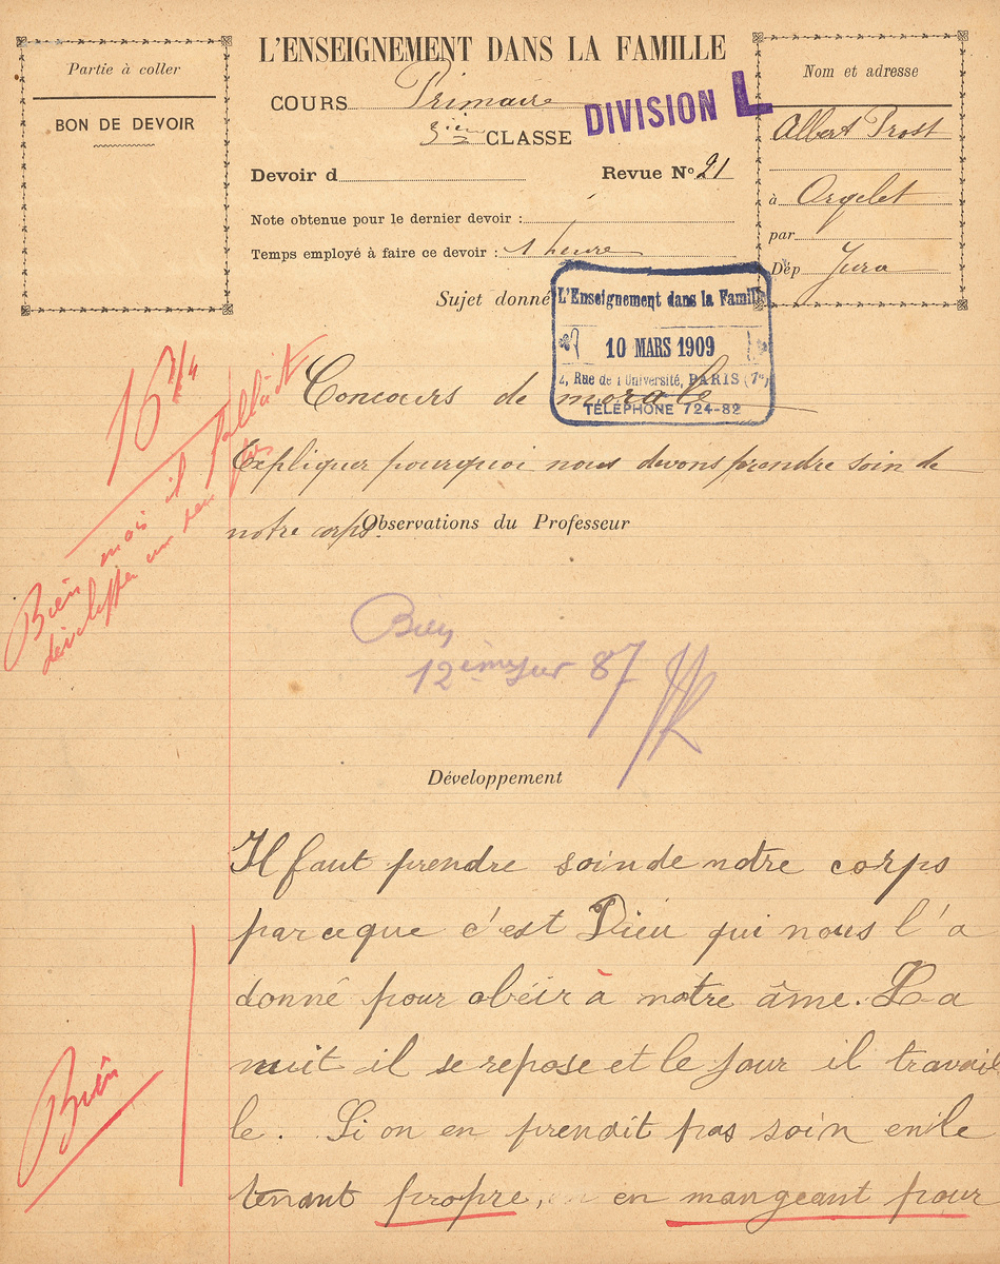 L'ENSEIGNEMENT DANS LA FAMILLE
Partie à coller
BON DE DEVOIR
COURS Primaire
3ième CLASSE
DIVISION L
Devoir d
Revue N° 21
Note obtenue pour le dernier devoir :
Temps employé à faire ce devoir : 1 heure
Nom et adresse
Albert Prost
à Orgelet
par
Dép Jura
Sujet donné
L'Enseignement dans la Famille
10 MARS 1909
2, Rue de l'Université, PARIS (7e)
TÉLÉPHONE 724-82
16 1/4
Bien mais il fallait
développer un peu plus
Concours de morale
Expliquer pourquoi nous devons prendre soin de
notre corps.
Observations du Professeur
Bien
12ème sur 87
Développement
Il faut prendre soin de notre corps
parceque c'est Dieu qui nous l'a
donné pour obéir à notre âme. La
nuit il se repose et le jour il travail
le. Si on en prenait pas soin en le
tenant propre, en mangeant pour
Bien